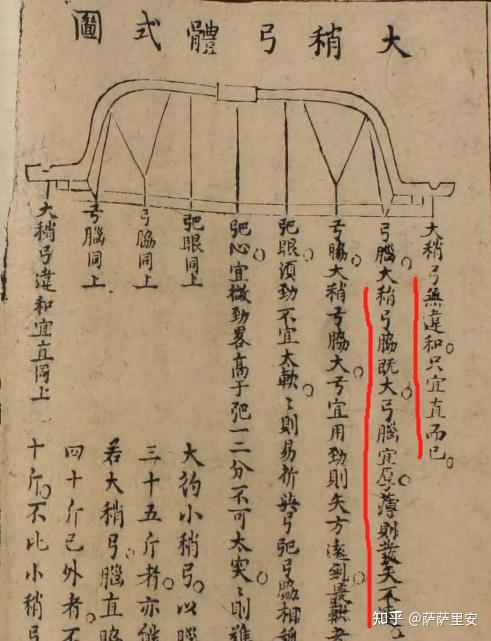 大稍弓體式圖
大稍弓無違和。只宜直而已。
弓腦。大稍弓脇既大。弓腦宜厚。薄則發矢不
弓脇。大稍弓脇大。弓宜用勁則矢方遠到。最軟者
弝眼。須勁不宜太軟。〻則易折與弓弝弓脇相
弝心。宜微勁畧高于弝一二分不可太突。〻則難
弝眼同上
弓脇同上
弓腦同上
大稍弓違和宜直同上
大約小稍弓。以腦
三十五斤者。亦能
若大稍弓。腦直脇
四十斤已外者。不
十斤。不比小稍弓
知乎 @萨萨里安